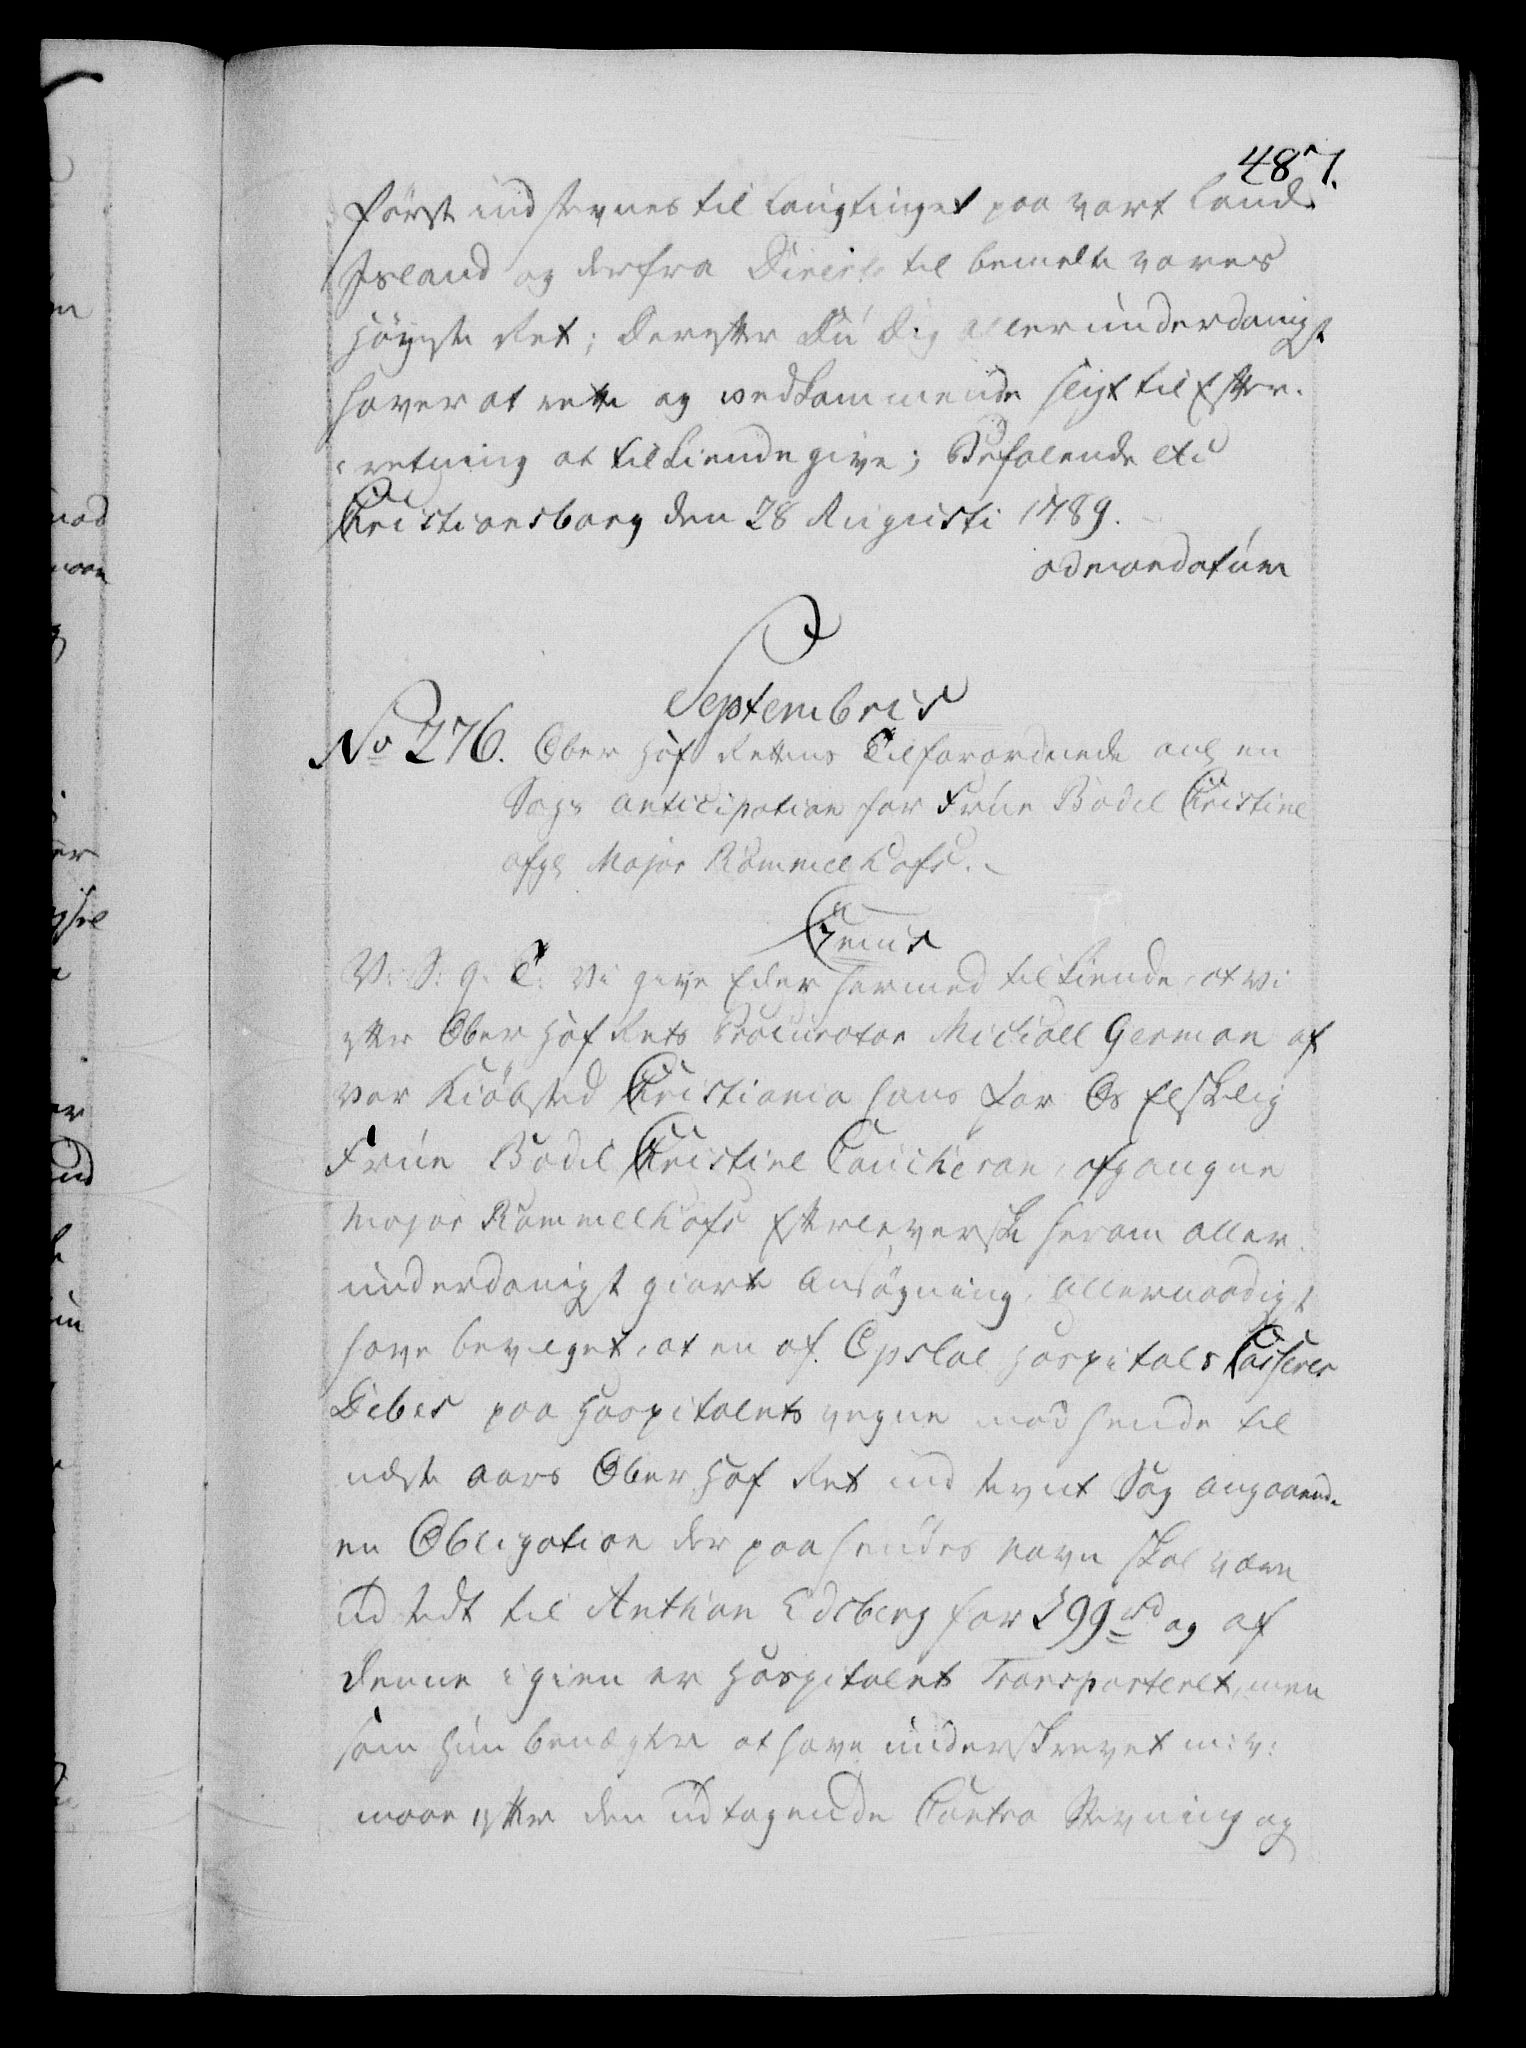 487.
först indstevnes til Laugtinget paa vort Land
Island og derfra Directe til bemelte vores
Höyeste Ret; Derefter Du Dig allerunderdanigst
haver at rette og vedkommende sligt til Efter-
retning at tilkiendegive; Befalende etc
Christiansborg den 28 Augusti 1789.
ad mandatum
Septembris
No 276. Ober Hof Rettens Tilforordnede ang en
Sags Anticipation for Frue Bodil Christine
afg Major Rømmelhofs.
C 7mus
V: S: G: T: Vi give Eder hermed tilkiende, at vi
efter Ober Hof Rets Procurator Michall German af
vor Kiöbsted Christiania hans for Os Elskelig
Frue Bodil Christine Coucheron, afgangne
Major Rømmelhofs Efterleverske herom aller-
underdanigst giorte Ansögning, Allernaadigst
have bevilget, at en af Opsloe Hospitals Casserer
Debes paa Hospitalets vegne mod hende til
neste Aars Ober Hof Ret indstevnt Sag angaaende
en Obligation der paa hendes navn skal være
udstedt til Anthon Edsberg for 299 rd og af
denne igien er Hospitalet Transporteret, men
som hun benægter at have underskrevet m: v:
maae efter den udtagende Contra Stevning og